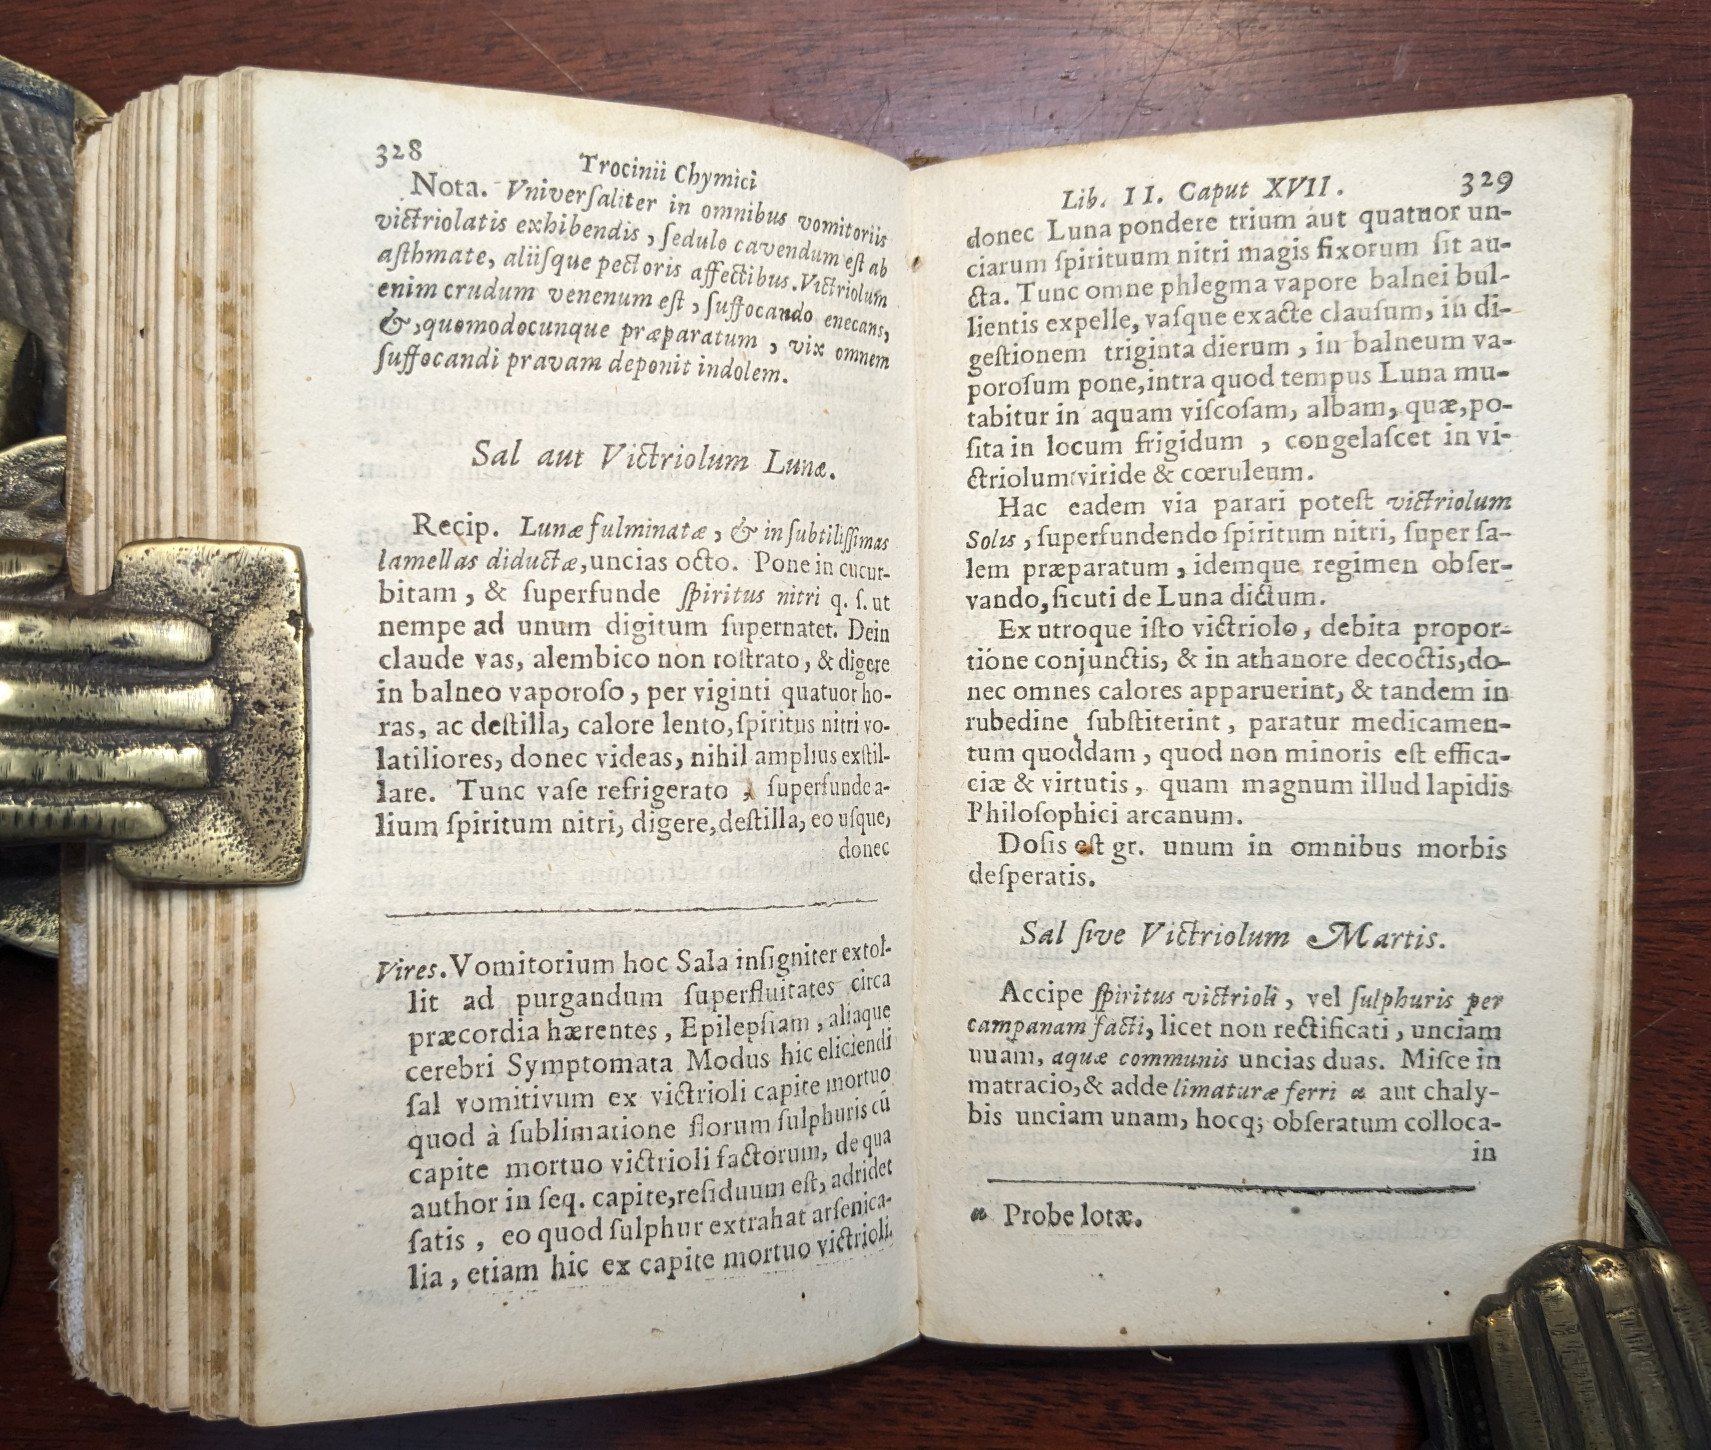 328
Trocinii Chymici
Nota. Vniverſaliter in omnibus vomitoriis
victriolatis exhibendis, ſedulo cavendum eſt ab
aſthmate, aliiſque pectoris affectibus. Victriolum
enim crudum venenum eſt, ſuffocando enecans,
&, quomodocunque præparatum, vix omnem
ſuffocandi pravam deponit indolem.
Sal aut Victriolum Lunæ.
Recip. Lunæ fulminatæ, & in ſubtiliſſimas
lamellas diductæ, uncias octo. Pone in cucur-
bitam, & ſuperfunde ſpiritus nitri q. ſ. ut
nempe ad unum digitum ſupernatet. Dein
claude vas, alembico non roſtrato, & digere
in balneo vaporoſo, per viginti quatuor ho-
ras, ac deſtilla, calore lento, ſpiritus nitri vo-
latiliores, donec videas, nihil amplius exſtil-
lare. Tunc vaſe refrigerato, ſuperfunde a-
lium ſpiritum nitri, digere, deſtilla, eo uſque,
donec
Vires. Vomitorium hoc Sala inſigniter extol-
lit ad purgandum ſuperfluitates circa
præcordia hærentes, Epilepſiam, aliaque
cerebri Symptomata Modus hic eliciendi
ſal vomitivum ex victrioli capite mortuo
quod à ſublimatione florum ſulphuris cũ
capite mortuo victrioli factorum, de qua
author in ſeq. capite, reſiduum eſt, adridet
ſatis, eo quod ſulphur extrahat arſenica-
lia, etiam hic ex capite mortuo victrioli.
Lib. II. Caput XVII. 329
donec Luna pondere trium aut quatuor un-
ciarum ſpirituum nitri magis fixorum ſit au-
cta. Tunc omne phlegma vapore balnei bul-
lientis expelle, vaſque exacte clauſum, in di-
geſtionem triginta dierum, in balneum va-
poroſum pone, intra quod tempus Luna mu-
tabitur in aquam viſcoſam, albam, quæ, po-
ſita in locum frigidum, congelaſcet in vi-
ctriolum viride & cœruleum.
Hac eadem via parari poteſt victriolum
Solis, ſuperfundendo ſpiritum nitri, ſuper ſa-
lem præparatum, idemque regimen obſer-
vando, ſicuti de Luna dictum.
Ex utroque iſto victriolo, debita propor-
tione conjunctis, & in athanore decoctis, do-
nec omnes calores apparuerint, & tandem in
rubedine ſubſtiterint, paratur medicamen-
tum quoddam, quod non minoris eſt effica-
ciæ & virtutis, quam magnum illud lapidis
Philoſophici arcanum.
Doſis eſt gr. unum in omnibus morbis
deſperatis.
Sal ſive Victriolum Martis.
Accipe ſpiritus victrioli, vel ſulphuris per
campanam facti, licet non rectificati, unciam
unam, aquæ communis uncias duas. Miſce in
matracio, & adde limaturæ ferri a aut chaly-
bis unciam unam, hocq; obſeratum colloca-
in
a Probe lotæ.